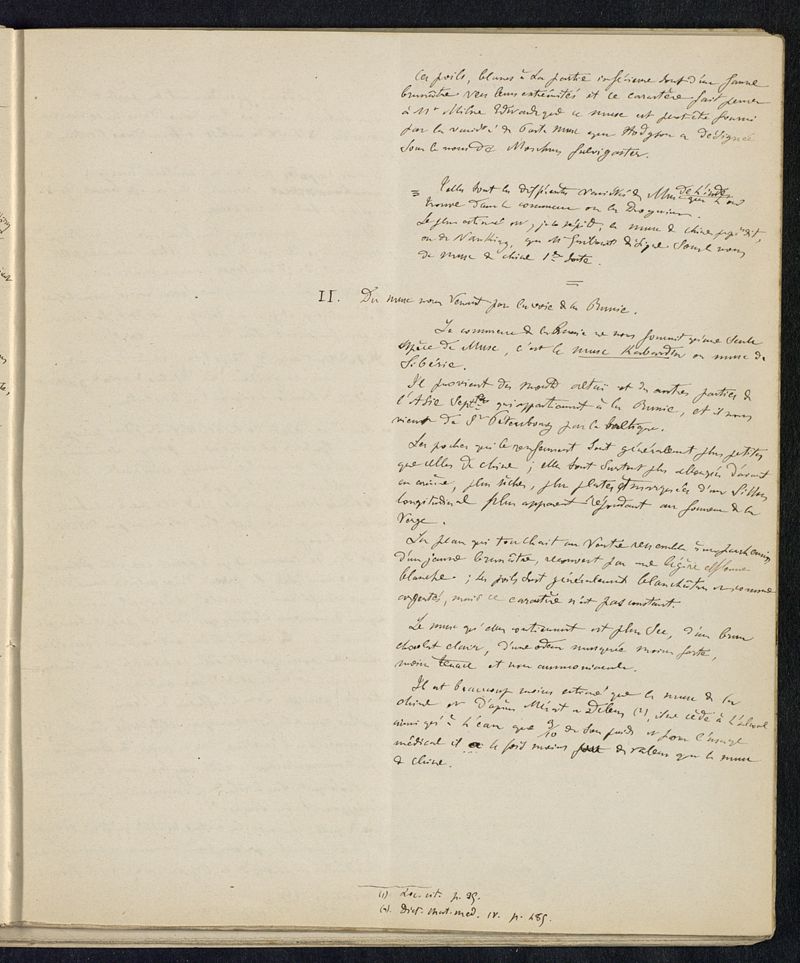 Ces poils, blancs à la partie inférieure sont d'un jaune
brunâtre vers leurs extrémités et ce caractère fait penser
à Mr Milne Edwards que ce musc est peut être fourni
par la variété de Porte musc que Hodgson a désignée
sous le nom de Moschus fulvigaster.
= Telles sont les différentes variétés de Musc de l'Inde que l'on
trouve dans le commerce ou la Droguerie.
Le plus estimé est, je le répète, le musc de Chine
ou de Nanking, que Mr Guibourt désigne sous le nom
de musc de chine 1re Sorte.
II. Du musc nous venant par la voie de la Russie.
Le commerce de la Russie ne nous fournit qu'une seule
Espèce de Musc, c'est le musc Kabardin ou musc de
Sibérie.
Il provient des monts altaï et des autres parties de
l'Asie Septle qui appartiennent à la Russie, et il nous
vient de St Petersbourg par la baltique.
Les poches qui le renferment sont généralement plus petites
que celles de chine ; elles sont surtout plus allongées d'avant
en arrière, plus sèches, plus plates et marquées d'un Sillon
longitudinal plus apparent répondant au fourreau de la
Verge.
La peau qui touchait au Ventre ressemble à un parchemin
d'un jaune brunâtre, recouvert par une légère
blanche ; les poils sont généralement blanchâtres et comme
argentés, mais ce caractère n'est pas constant.
Le musc qu'elles contiennent est plus Sec, d'un brun
chocolat clair, d'une odeur musquée moins forte,
moins tenace et non ammoniacale.
Il est beaucoup moins estimé que le musc de la
chine et D'après Mérat et Delens (2), il ne cède à l'alcool
ainsi qu'à l'eau que 9/10 de son poids et pour l'usage
médical il a le fois moins de valeur que le musc
de chine.
(1) Loc. cit. p. 95.
(2) Dict. mat. med. IV. p. 485.